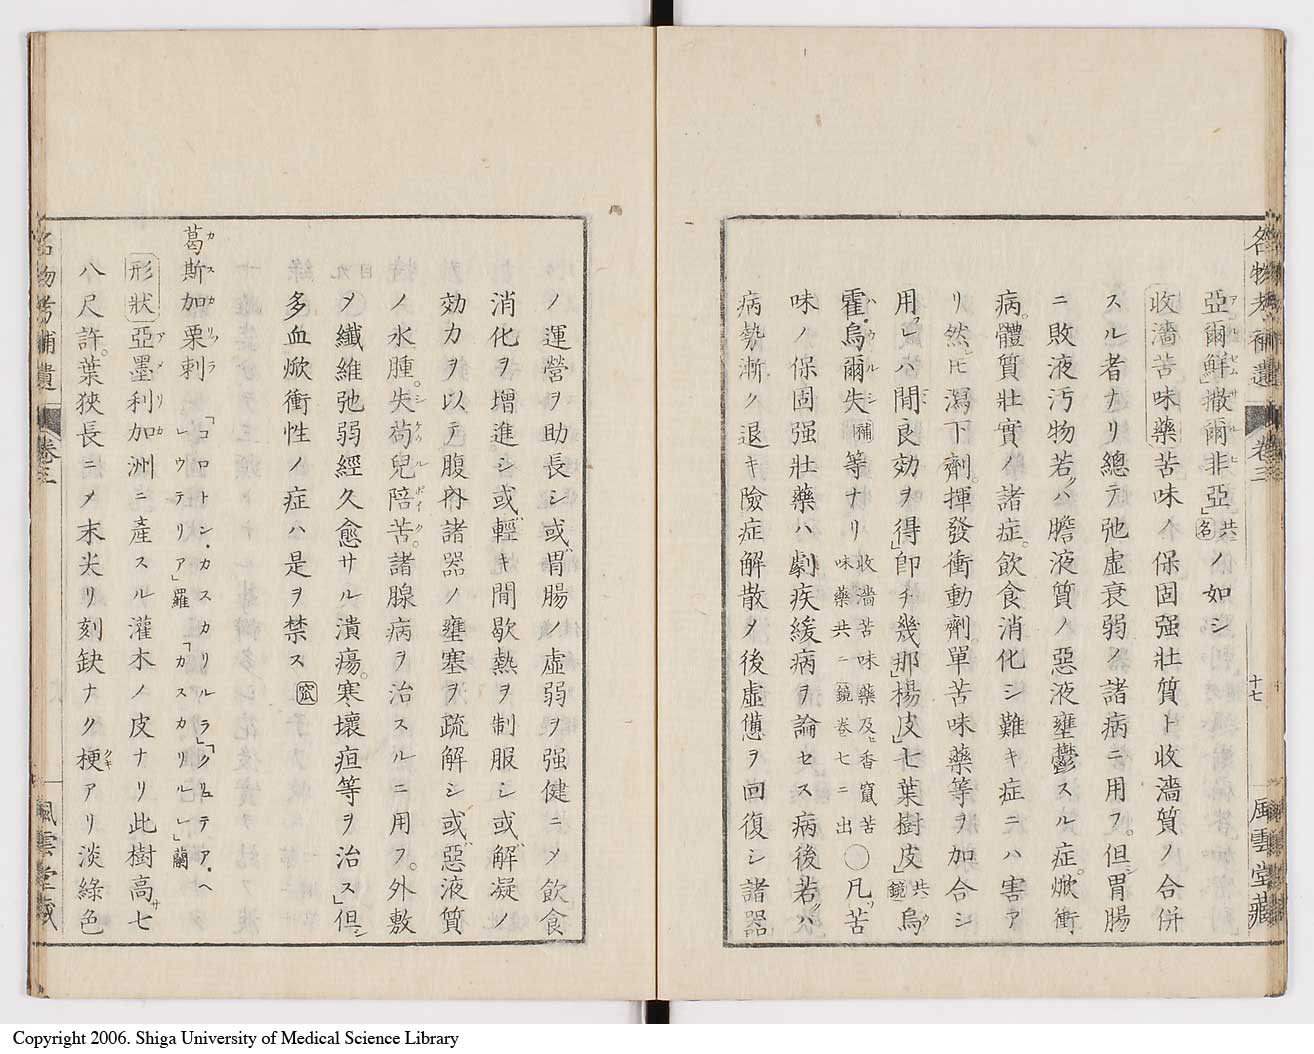 名物考補遺 卷三 十七 風雲堂藏
亞爾鮮撒爾非亞共名ノ如シ
收濇苦味藥苦味ノ保固强壯質ト收濇質ノ合併
スル者ナリ總テ弛虛衰弱ノ諸病ニ用フ但シ胃腸
ニ敗液汚物若クハ膽液質ノ惡液壅鬱スル症焮衝
病體質壯實ノ諸症飮食消化シ難キ症ニハ害ア
リ然レ𪜈瀉下劑揮發衝動劑單苦味藥等ヲ加合シ
用レハ間良効ヲ得即チ幾那楊皮七葉樹皮共鏡烏
霍烏爾失補等ナリ收濇苦味藥及ヒ香竄苦味藥共ニ鏡卷七ニ出〇凡ソ苦
味ノ保固强壯藥ハ劇疾緩病ヲ論セス病後若クハ
病勢漸ク退キ險症解散乄後虛憊ヲ回復シ諸器
ノ運營ヲ助長シ或ハ胃腸ノ虛弱ヲ强健ニ乄飮食
消化ヲ增進シ或ハ輕キ間歇熱ヲ制服シ或ハ解凝ノ
効力ヲ以テ腹內諸器ノ壅塞ヲ疏解シ或ハ惡液質
ノ水腫失苟兒陪苦諸腺病ヲ治スルニ用フ外敷
乄纖維弛弱經久愈サル潰瘍寒壞疽等ヲ治ス但シ
多血焮衝性ノ症ハ是ヲ禁ス
葛斯加栗剌「コロトン・カスカリルラ」「クリュテア・ヘレウテリア」羅「カスカリルレ」蘭
形狀亞墨利加洲ニ產スル灌木ノ皮ナリ此樹高サ七
八尺許葉狹長ニ乄末尖リ刻缺ナク梗アリ淡綠色
名物考補遺 卷三 風雲堂藏
Copyright 2006. Shiga University of Medical Science Library